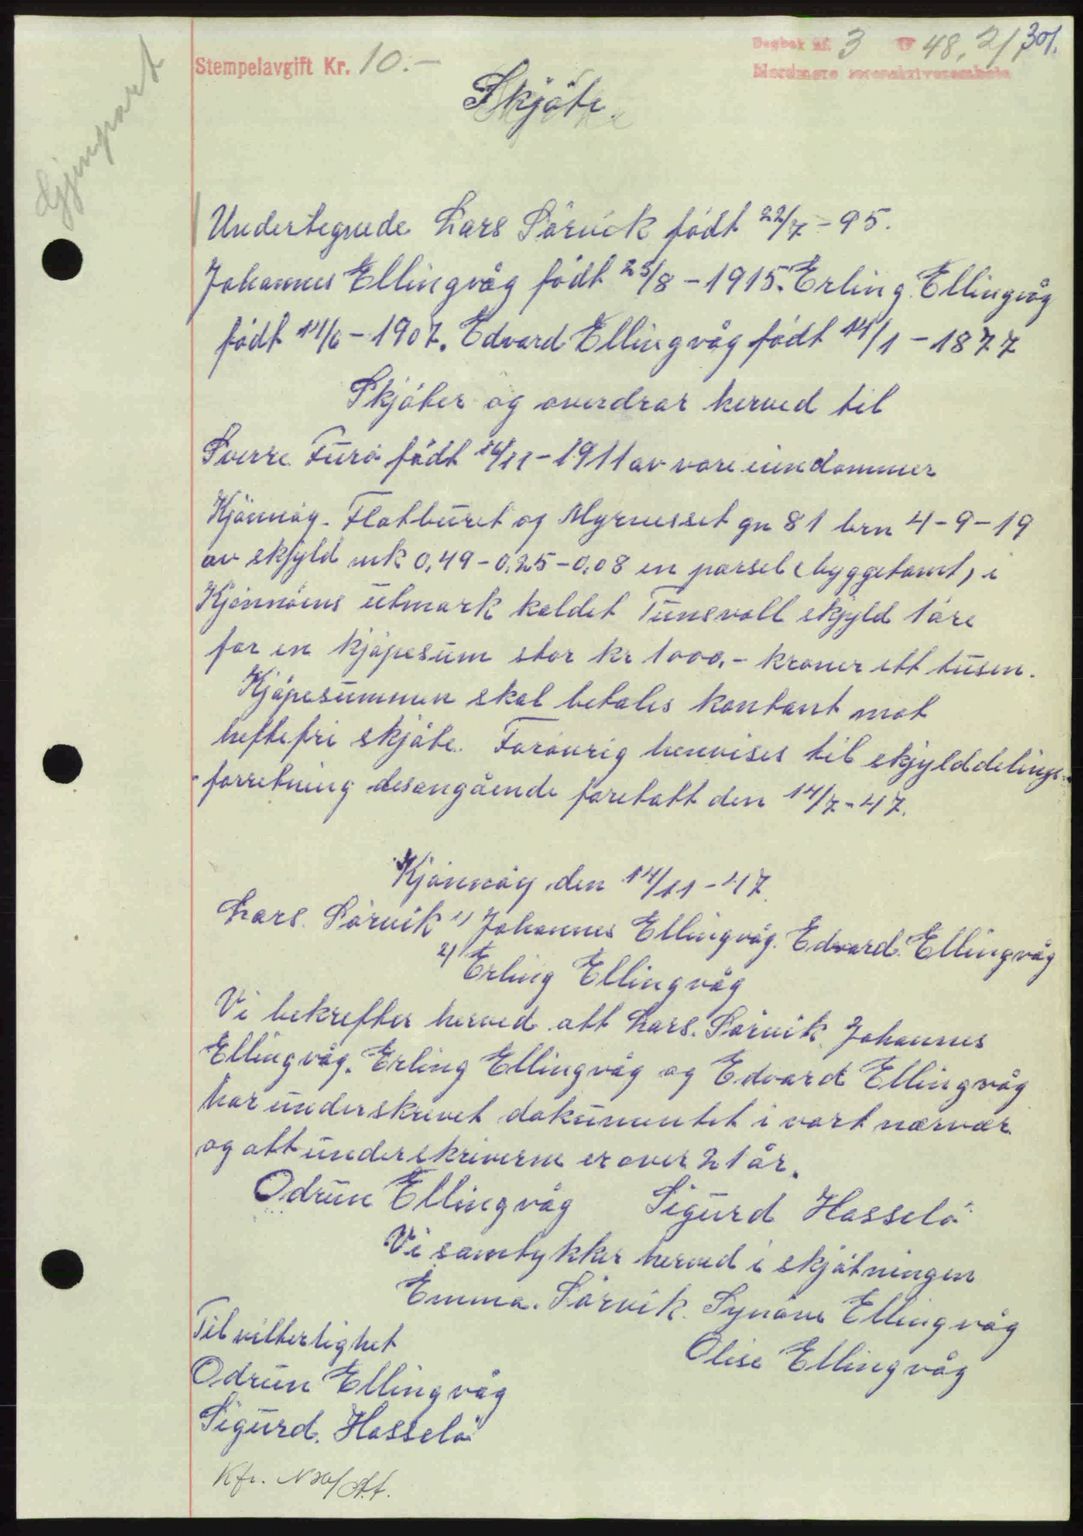 301.
Dagbok nr. 3 19 48, 2/1
Nordmøre sorenskriverembete
Stempelavgift Kr. 10.-
Gjenpart
Skjöte.
Undertegnede Lars Sörvik födt 22/7 - 95.
Johannes Ellingvåg födt 25/8 - 1915. Erling Ellingvåg
födt 14/6 - 1907. Edvard Ellingvåg födt 14/1 - 1877
Skjöter og overdrar herved til
Sverre Furö födt 14/11 - 1911 av vore eiendommer
Kjönnöy - Flatburet og Myrnesset gn 81 brn 4-9-19
av skjyld mk 0,49 - 0,25 - 0,08 en parsel (byggetomt) i
Kjönnöens utmark kaldet Tunsvoll skjyld 1 öre
for en kjöpesum stor kr 1000,- kroner ett tusen.
Kjöpesummen skal betales kontant mot
heftefri skjöte. Forövrig henvises til skjylddelings-
forretning desangående foretatt den 14/7-47.
Kjönnöy den 14/11-47.
Lars Sörvik 1) Johannes Ellingvåg. Edvard Ellingvåg
2) Erling Ellingvåg
Vi bekrefter herved att Lars Sörvik Johannes
Ellingvåg. Erling Ellingvåg og Edvard Ellingvåg
har underskrevet dokumentet i vort nærvær
og att underskriverne er over 21 år.
Odrun Ellingvåg Sigurd Hasselö
Vi samtykker herved i skjötningen
Emma Sörvik. Synöve Ellingvåg
Olise Ellingvåg
Til vitterlighet
Odrun Ellingvåg
Sigurd Hasselö
Kfr.